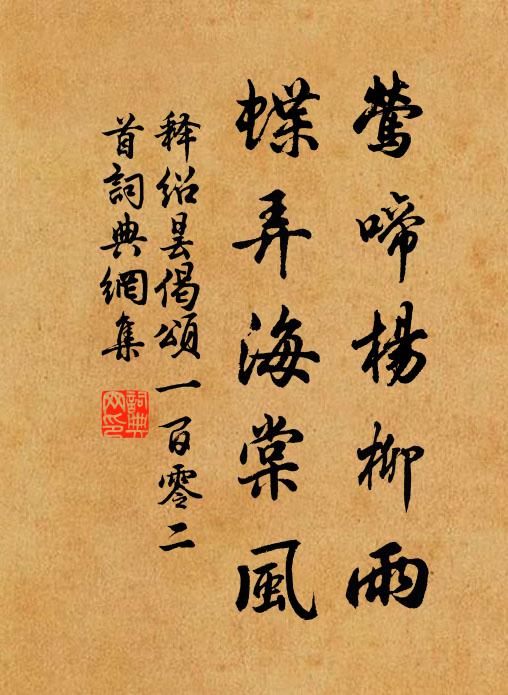 鶯啼楊柳雨
蝶弄海棠風
释绍昙偈頌一百零二
首詞典網集
詞典
网印